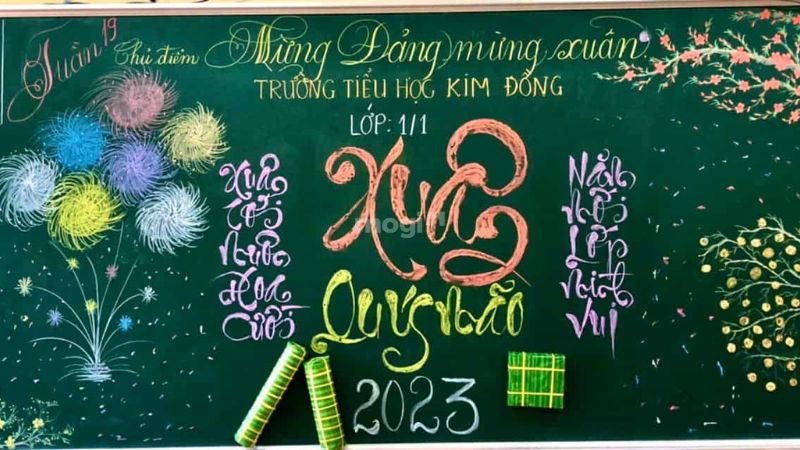 Tuần 19
Chủ điểm Mừng Đảng mừng xuân
TRƯỜNG TIỂU HỌC KIM ĐỒNG
LỚP: 1/1
Xuân
Tới
Muôn
Hoa
Cười
Xuân
Quý Mão
2023
Năm
Mới
Lớp
Mình
Vui